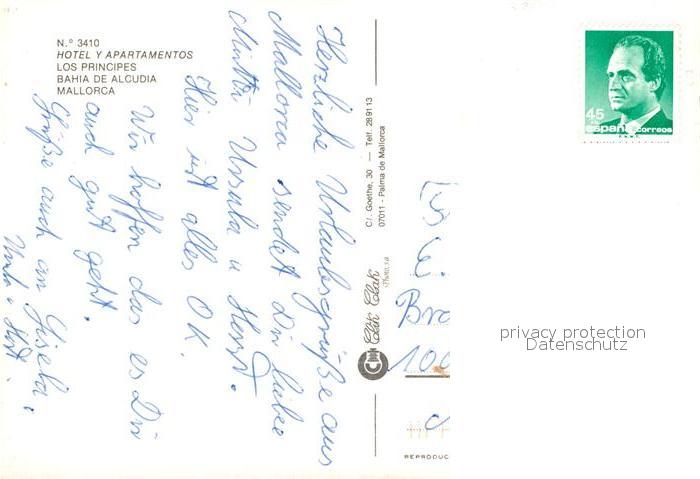 N.° 3410
HOTEL Y APARTAMENTOS
LOS PRINCIPES
BAHIA DE ALCUDIA
MALLORCA
Herzliche Urlaubsgrüße aus
Mallorca sendet Dir liebe
Mutti Ursula u Horst.
Hier ist alles OK.
Wir hoffen das es Dir
auch gut geht.
Grüße auch an Gisela.
Horst.
C/. Goethe, 30 — Telf. 28 91 13
07011 - Palma de Mallorca
Clik Clak
REPRODUC
Bro
100
45
españa correos
privacy protection
Datenschutz